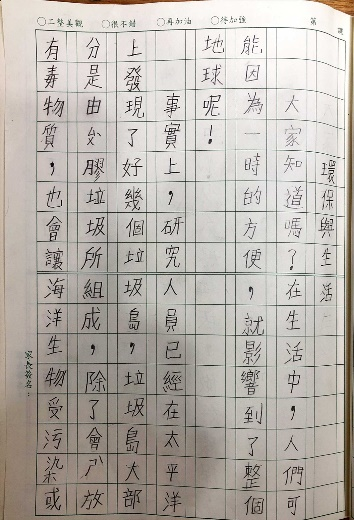 ○工整美觀 ○很不錯 ○再加油 ○待加強 第 課
環保與生活
大家知道嗎?在生活中,人們可
能因為一時的方便,就影響到了整個
地球呢!
事實上,研究人員已經在太平洋
上發現了好幾個垃圾島,垃圾島大部
分是由膠垃圾所組成,除了會放
有毒物質,也會讓海洋生物受污染或
家長簽名: